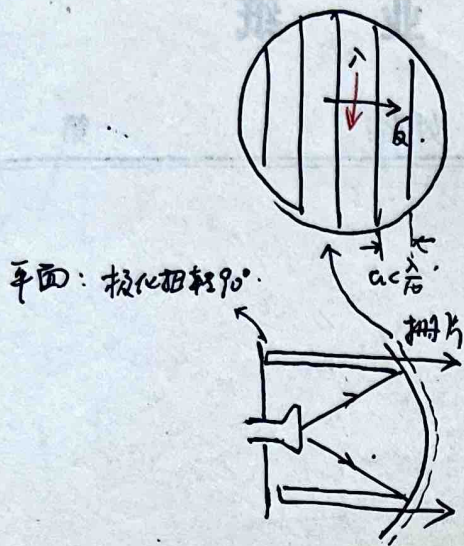 入
反
a<λ/10
平面：极化扭转90°.
栅片